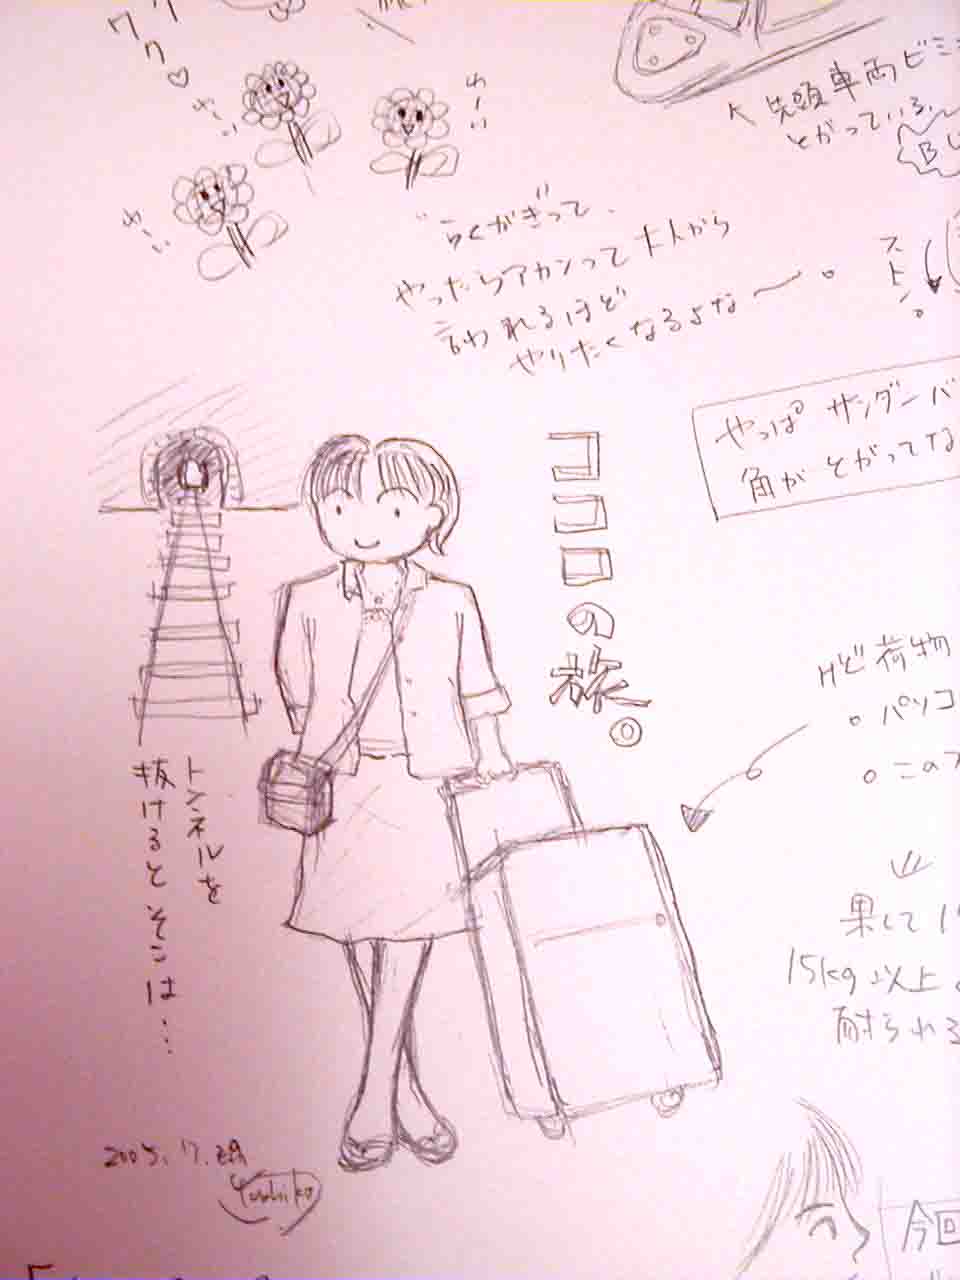 ワク♡
わーい
わーい
わーい
←先頭車両ビミ
とがっている
"らくがき"って、
やったらアカンって大人から
言われるほど
やりたくなるよな〜。
ストン。
やっぱ サンダーバ
角がとがってな
ココロの旅。
けど荷物
○パソコ
○この
果して
15kg以上
耐られる
トンネルを
抜けるとそこは…
2005.
Yoshiko
今回